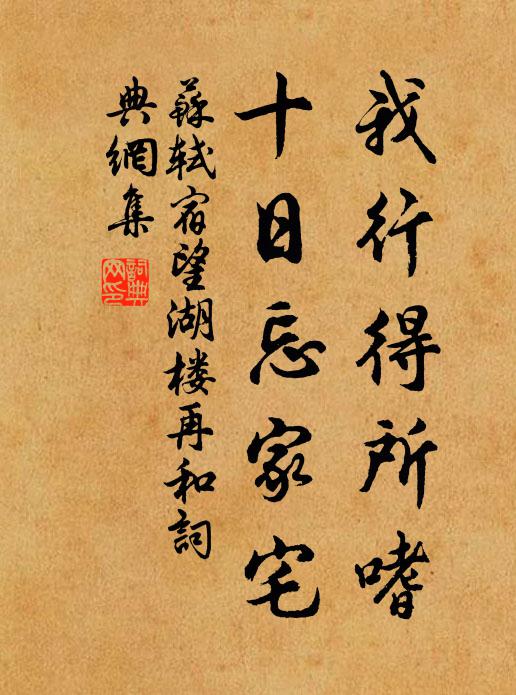 我行得所嗜
十日忘家宅
蘇軾宿望湖楼再和詞
典網集
詞典
网印